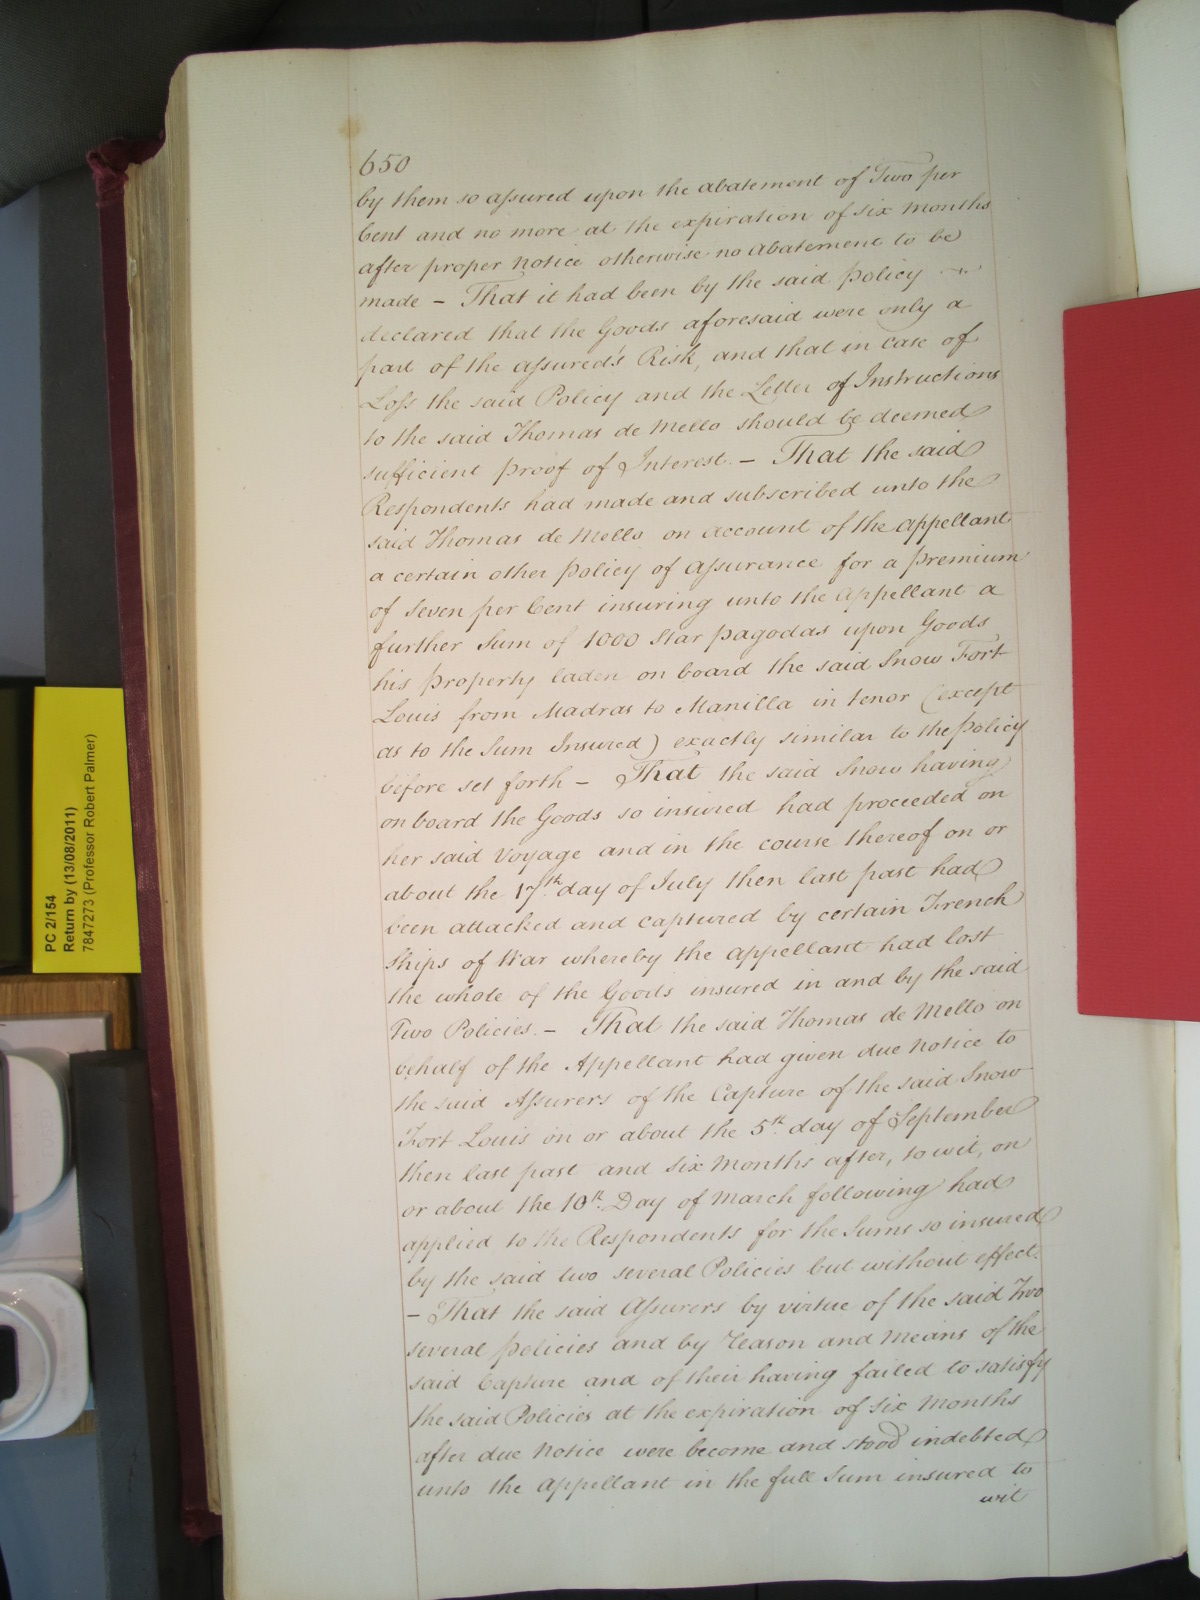 650
by them so assured upon the abatement of Two per
Cent and no more at the expiration of six Months
after proper Notice otherwise no Abatement to be
made – That it had been by the said Policy
declared that the Goods aforesaid were only a
part of the assured's Risk, and that in Case of
Loss the said Policy and the Letter of Instructions
to the said Thomas de Mello should be deemed
sufficient Proof of Interest. – That the said
Respondents had made and subscribed unto the
said Thomas de Mello on Account of the Appellant
a certain other Policy of Assurance for a Premium
of Seven per Cent insuring unto the Appellant a
further Sum of 1000 Star Pagodas upon Goods
his Property laden on board the said Snow Fort
Louis from Madras to Manilla in tenor (except
as to the Sum Insured) exactly similar to the Policy
before set forth – That the said Snow having
on board the Goods so insured had proceeded on
her said Voyage and in the course thereof on or
about the 17th day of July then last past had
been attacked and captured by certain French
Ships of War whereby the Appellant had lost
the whole of the Goods insured in and by the said
Two Policies. – That the said Thomas de Mello on
behalf of the Appellant had given due Notice to
the said Assurers of the Capture of the said Snow
Fort Louis on or about the 5th day of September
then last past and Six Months after, to wit, on
or about the 10th Day of March following had
applied to the Respondents for the Sums so insured
by the said two several Policies but without effect.
– That the said Assurers by virtue of the said Two
several Policies and by Reason and Means of the
said Capture and of their having failed to satisfy
the said Policies at the expiration of six Months
after due Notice were become and stood indebted
unto the Appellant in the full Sum insured to
wit
PC 2/154
Return by (13/08/2011)
7847273 (Professor Robert Palmer)